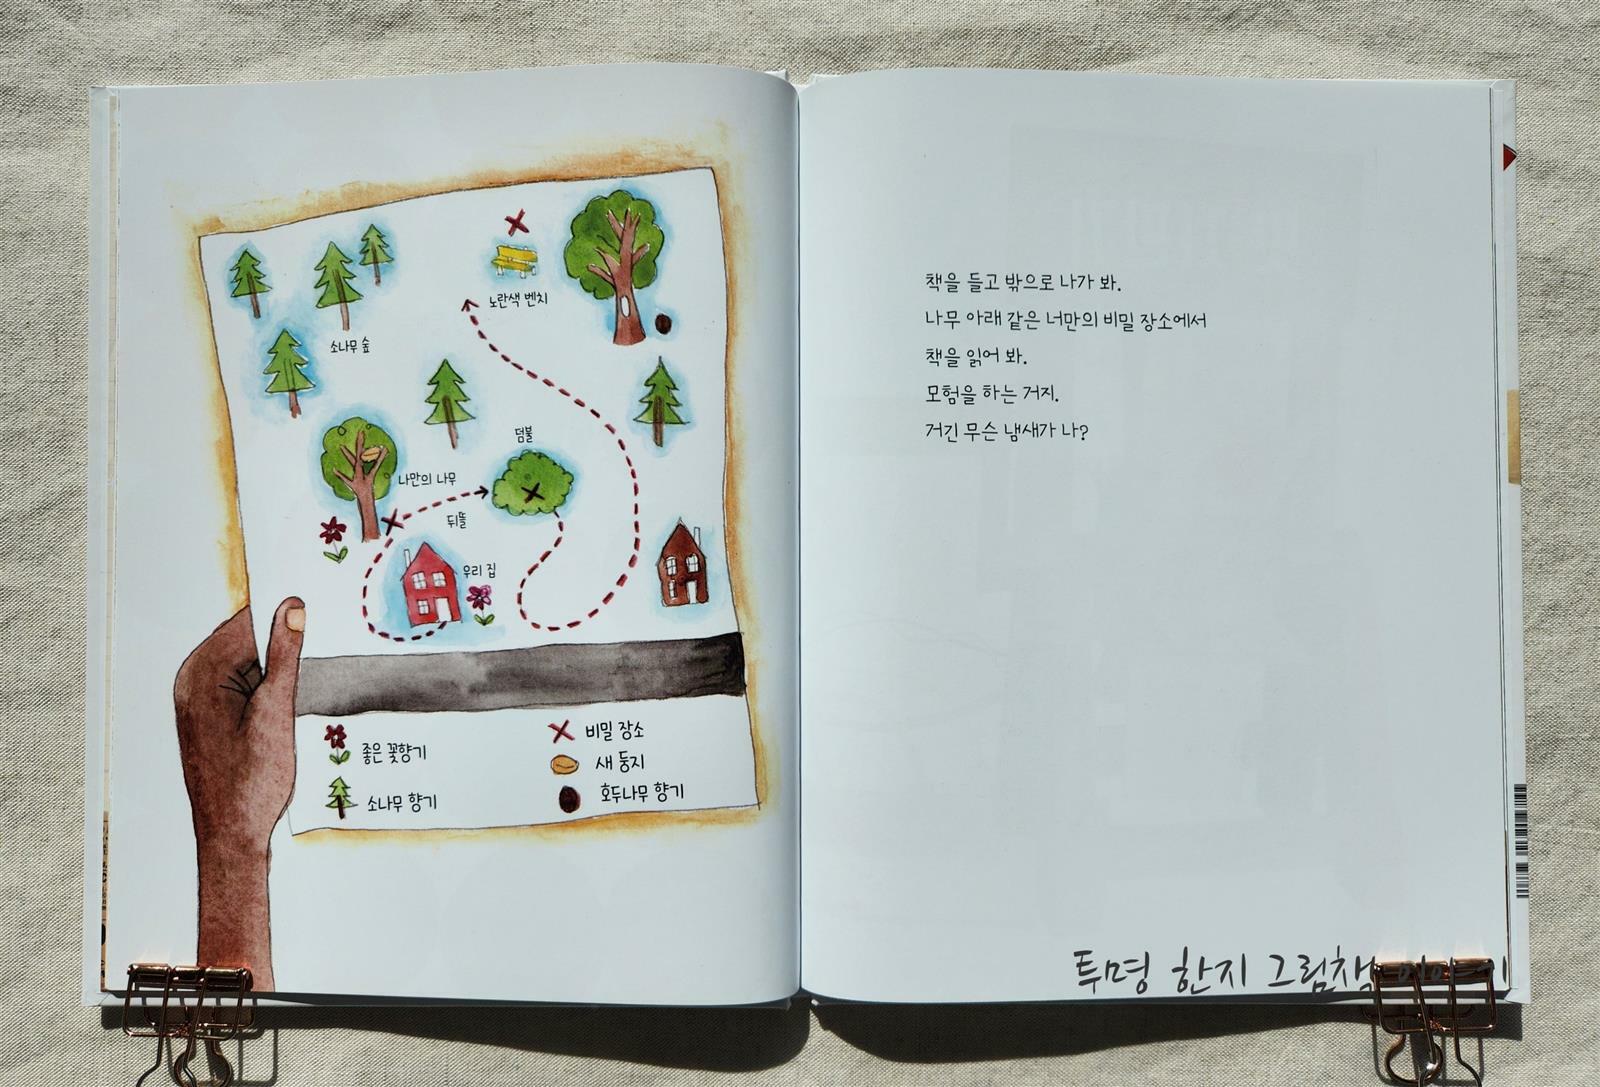 노란색 벤치
소나무 숲
덤불
나만의 나무
뒤뜰
우리 집
좋은 꽃향기
소나무 향기
비밀 장소
새 둥지
호두나무 향기
책을 들고 밖으로 나가 봐.
나무 아래 같은 너만의 비밀 장소에서
책을 읽어 봐.
모험을 하는 거지.
거긴 무슨 냄새가 나?
투명 한지 그림책 이야기